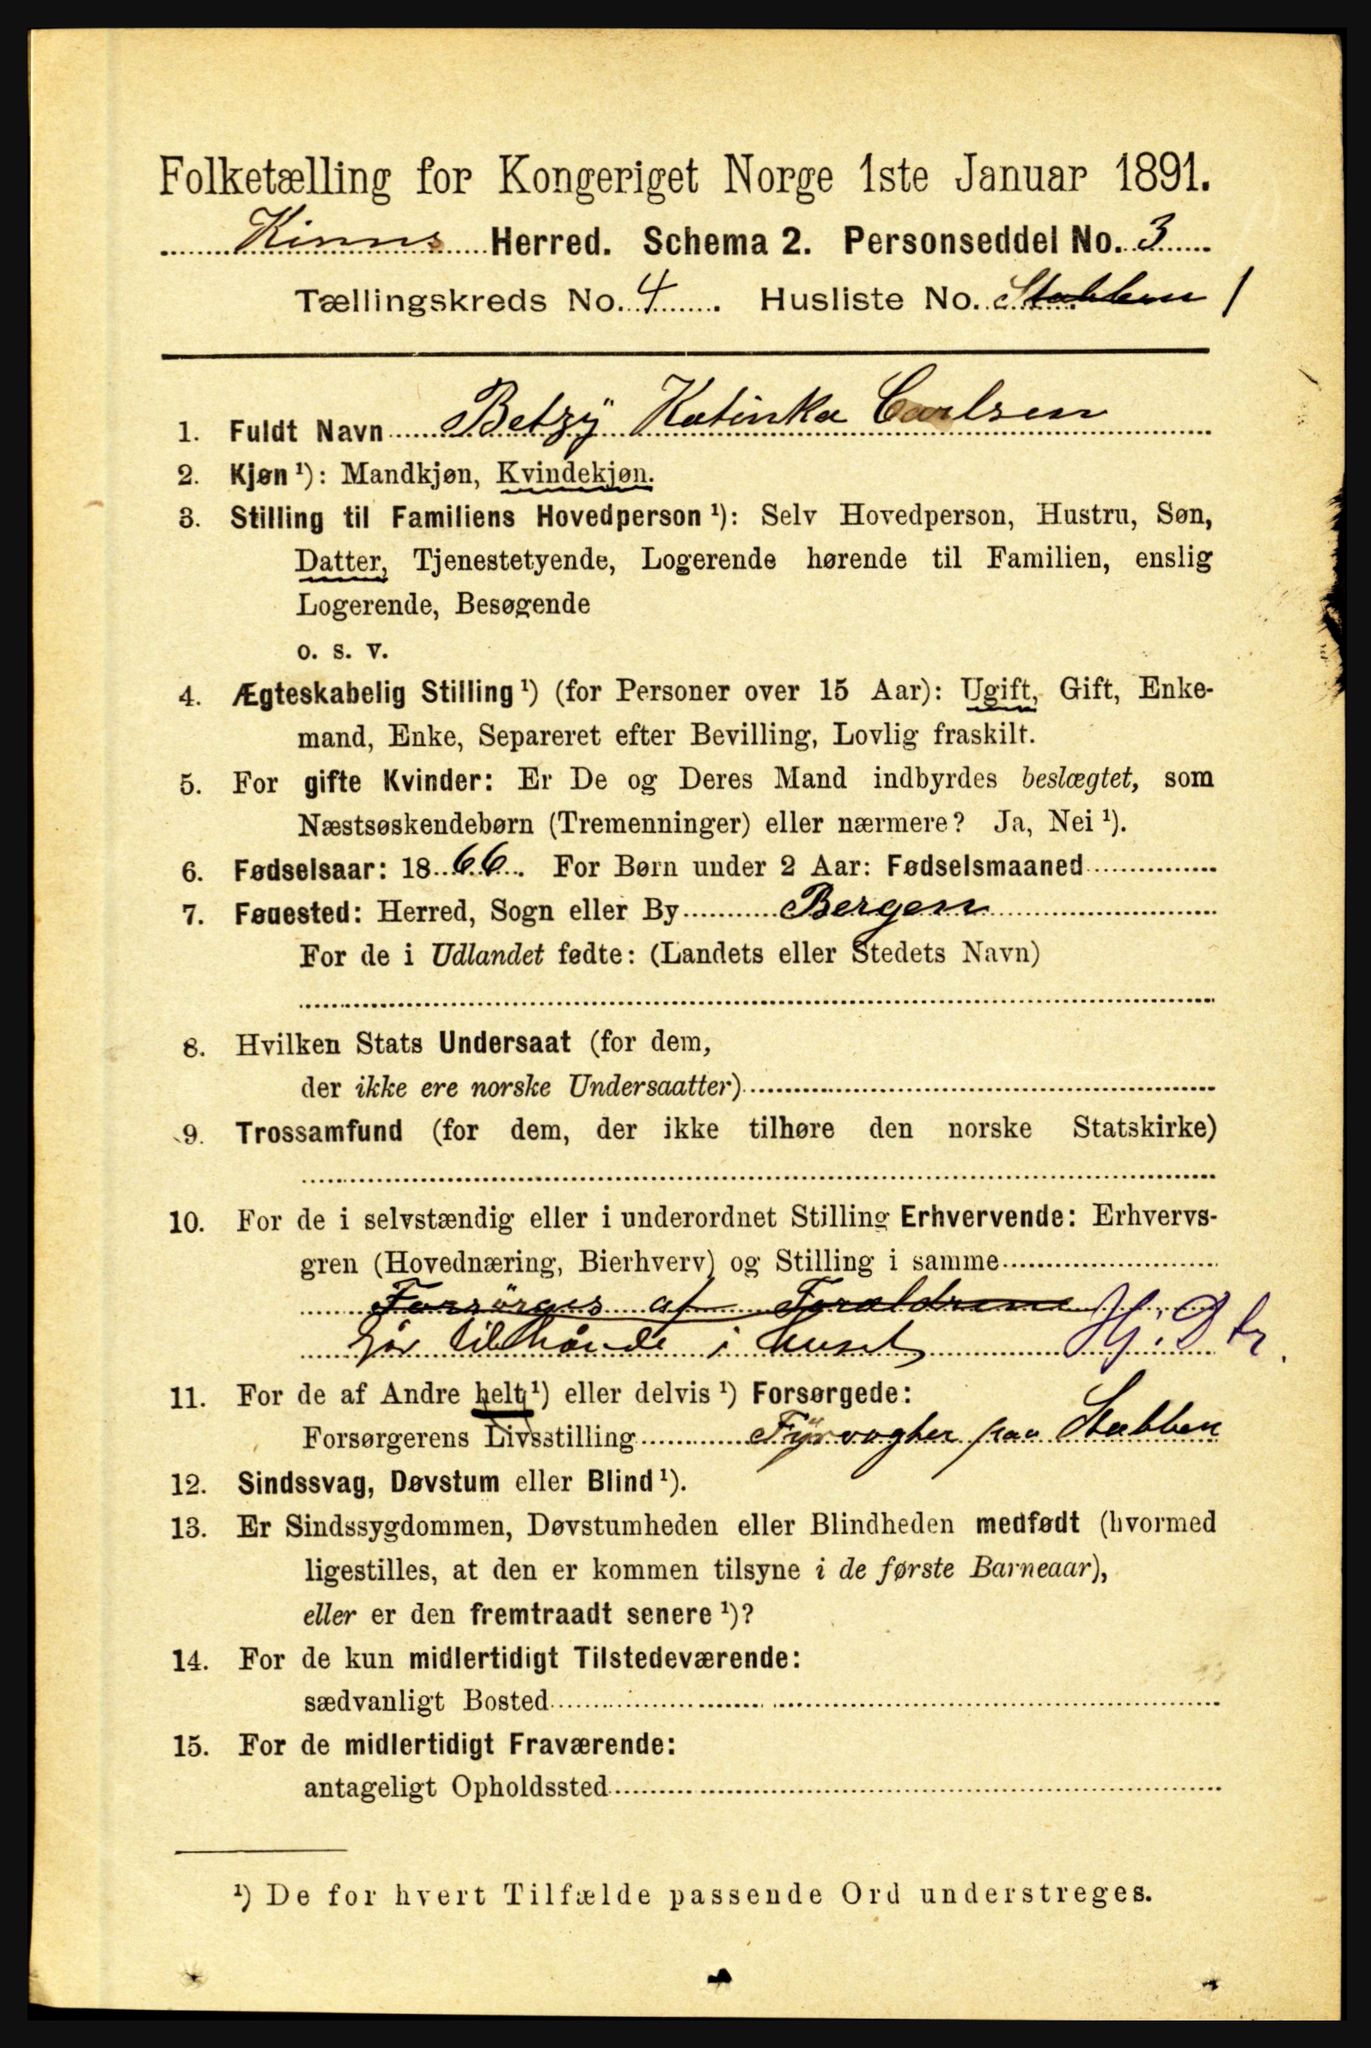 Folketælling for Kongeriget Norge 1ste Januar 1891.
Kinns Herred. Schema 2. Personseddel No. 3
Tællingskreds No. 4. Husliste No. Stabben 1
1. Fuldt Navn Betzÿ Katinka Carlsen
2. Kjøn ¹): Mandkjøn, Kvindekjøn.
3. Stilling til Familiens Hovedperson ¹): Selv Hovedperson, Hustru, Søn,
Datter, Tjenestetyende, Logerende hørende til Familien, enslig
Logerende, Besøgende
o. s. v.
4. Ægteskabelig Stilling ¹) (for Personer over 15 Aar): Ugift, Gift, Enke-
mand, Enke, Separeret efter Bevilling, Lovlig fraskilt.
5. For gifte Kvinder: Er De og Deres Mand indbyrdes beslægtet, som
Næstsøskendebørn (Tremenninger) eller nærmere? Ja, Nei ¹).
6. Fødselsaar: 1866. For Børn under 2 Aar: Fødselsmaaned
7. Føuested: Herred, Sogn eller By Bergen
For de i Udlandet fødte: (Landets eller Stedets Navn)
8. Hvilken Stats Undersaat (for dem,
der ikke ere norske Undersaatter)
9. Trossamfund (for dem, der ikke tilhøre den norske Statskirke)
10. For de i selvstændig eller i underordnet Stilling Erhvervende: Erhvervs-
gren (Hovednæring, Bierhverv) og Stilling i samme
Forsörges af Foraldrene
gör tilhånde i huset Hj. Dtr.
11. For de af Andre helt ¹) eller delvis ¹) Forsørgede:
Forsørgerens Livsstilling Fÿrvogter paa Stabben
12. Sindssvag, Døvstum eller Blind ¹).
13. Er Sindssygdommen, Døvstumheden eller Blindheden medfødt (hvormed
ligestilles, at den er kommen tilsyne i de første Barneaar),
eller er den fremtraadt senere ¹)?
14. For de kun midlertidigt Tilstedeværende:
sædvanligt Bosted
15. For de midlertidigt Fraværende:
antageligt Opholdssted
¹) De for hvert Tilfælde passende Ord understreges.